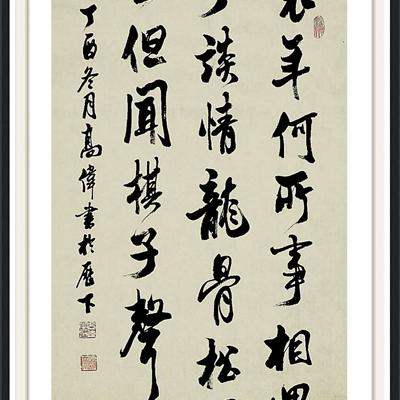 年何所事相
談情龍骨松
但聞棋子聲
丁酉冬月高偉書於歷下